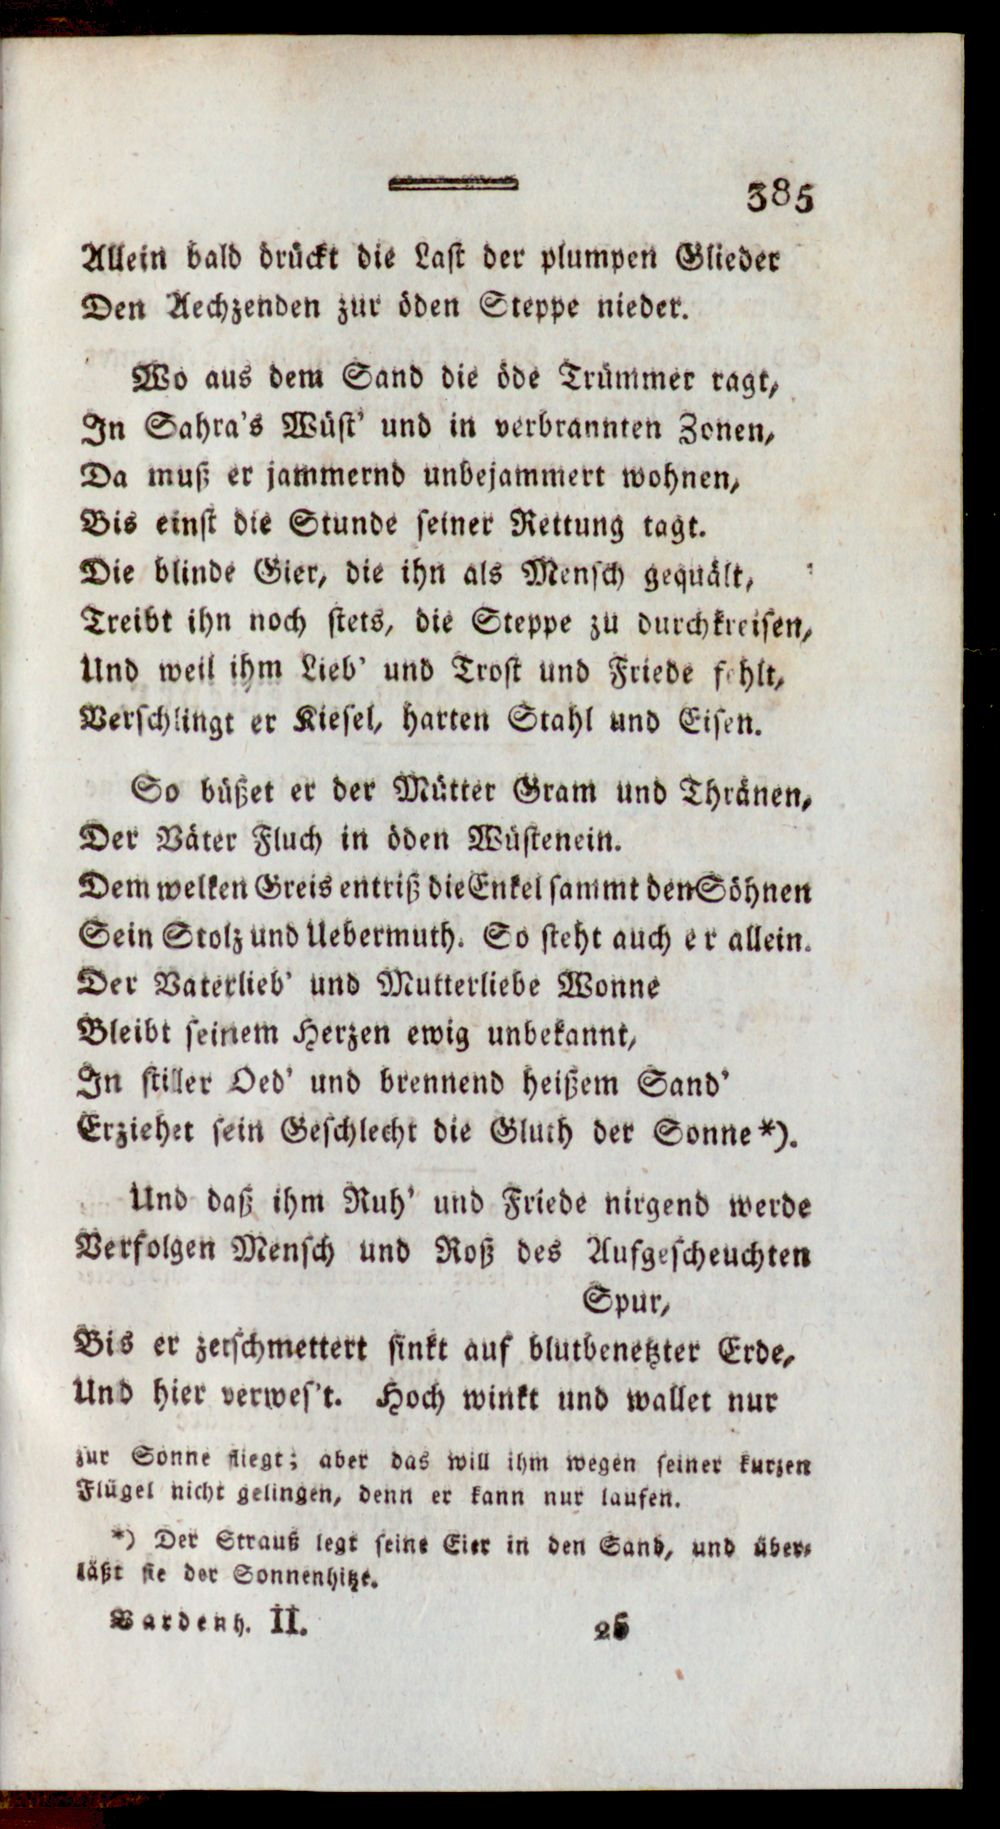 385
Allein bald drückt die Last der plumpen Glieder
Den Aechzenden zur öden Steppe nieder.
Wo aus dem Sand die öde Trümmer ragt,
In Sahra's Wüst' und in verbrannten Zonen,
Da muß er jammernd unbejammert wohnen,
Bis einst die Stunde seiner Rettung tagt.
Die blinde Gier, die ihn als Mensch gequält,
Treibt ihn noch stets, die Steppe zu durchkreisen,
Und weil ihm Lieb' und Trost und Friede fehlt,
Verschlingt er Kiesel, harten Stahl und Eisen.
So büßet er der Mütter Gram und Thränen,
Der Väter Fluch in öden Wüstenein.
Dem welken Greis entriß die Enkel sammt den Söhnen
Sein Stolz und Uebermuth. So steht auch er allein.
Der Vaterlieb' und Mutterliebe Wonne
Bleibt seinem Herzen ewig unbekannt,
In stiller Oed' und brennend heißem Sand'
Erziehet sein Geschlecht die Gluth der Sonne *).
Und daß ihm Ruh' und Friede nirgend werde
Verfolgen Mensch und Roß des Aufgescheuchten
Spur,
Bis er zerschmettert sinkt auf blutbenetzter Erde,
Und hier verwes't. Hoch winkt und wallet nur
zur Sonne fliegt; aber das will ihm wegen seiner kurzen
Flügel nicht gelingen, denn er kann nur laufen.
*) Der Strauß legt seine Eier in den Sand, und über-
läßt sie der Sonnenhitze.
Bardenh. II.